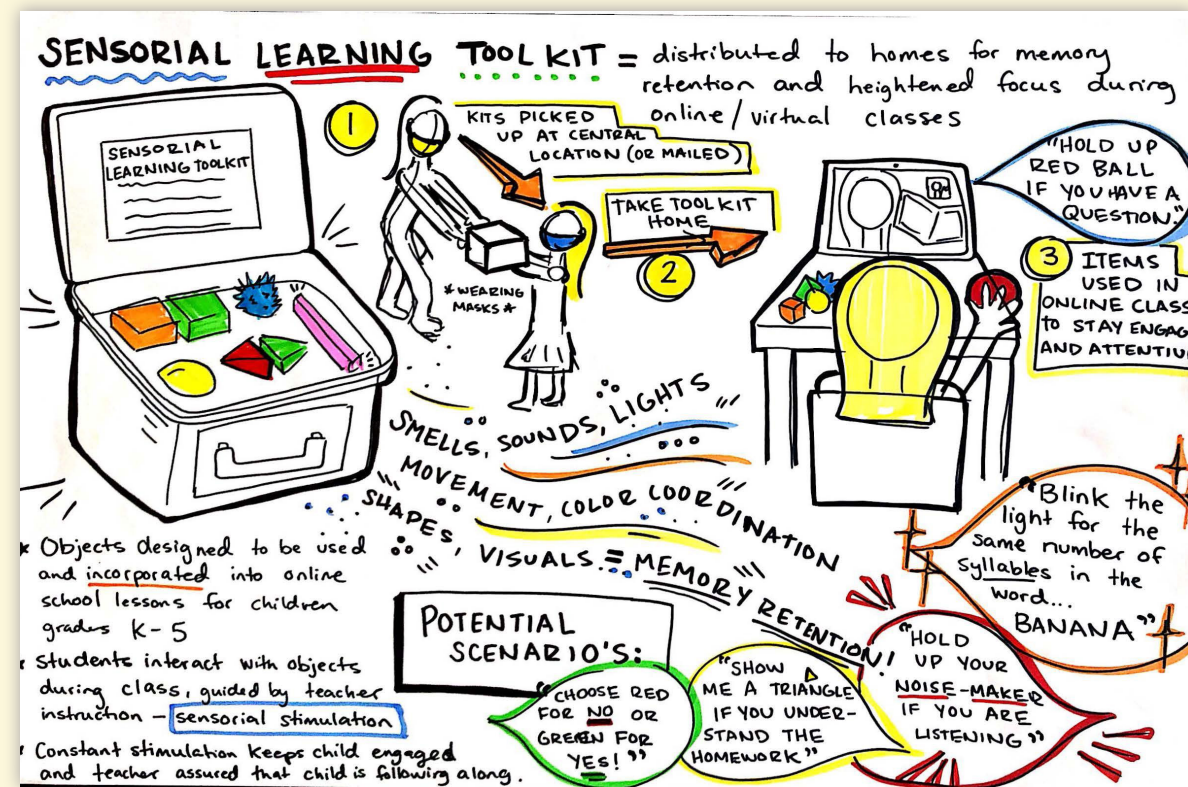 SENSORIAL LEARNING TOOLKIT = distributed to homes for memory
retention and heightened focus during
online/virtual classes
SENSORIAL
LEARNING TOOLKIT
1
KITS PICKED
UP AT CENTRAL
LOCATION (OR MAILED)
*WEARING
MASKS*
TAKE TOOLKIT
HOME
2
"HOLD UP
RED BALL
IF YOU HAVE A
QUESTION."
3 ITEMS
USED IN
ONLINE CLASS
TO STAY ENGAG
AND ATTENTIV
SMELLS, SOUNDS, LIGHTS
MOVEMENT, COLOR COORDINATION
SHAPES, VISUALS = MEMORY RETENTION!
* Objects designed to be used
and incorporated into online
school lessons for children
grades K-5
Students interact with objects
during class, guided by teacher
instruction - sensorial stimulation
Constant stimulation keeps child engaged
and teacher assured that child is following along.
POTENTIAL
SCENARIO'S:
"CHOOSE RED
FOR NO OR
GREEN FOR
YES!"
"SHOW
ME A TRIANGLE
IF YOU UNDER-
STAND THE
HOMEWORK"
"HOLD
UP YOUR
NOISE-MAKER
IF YOU ARE
LISTENING"
"Blink the
light for the
same number of
syllables in the
word...
BANANA"